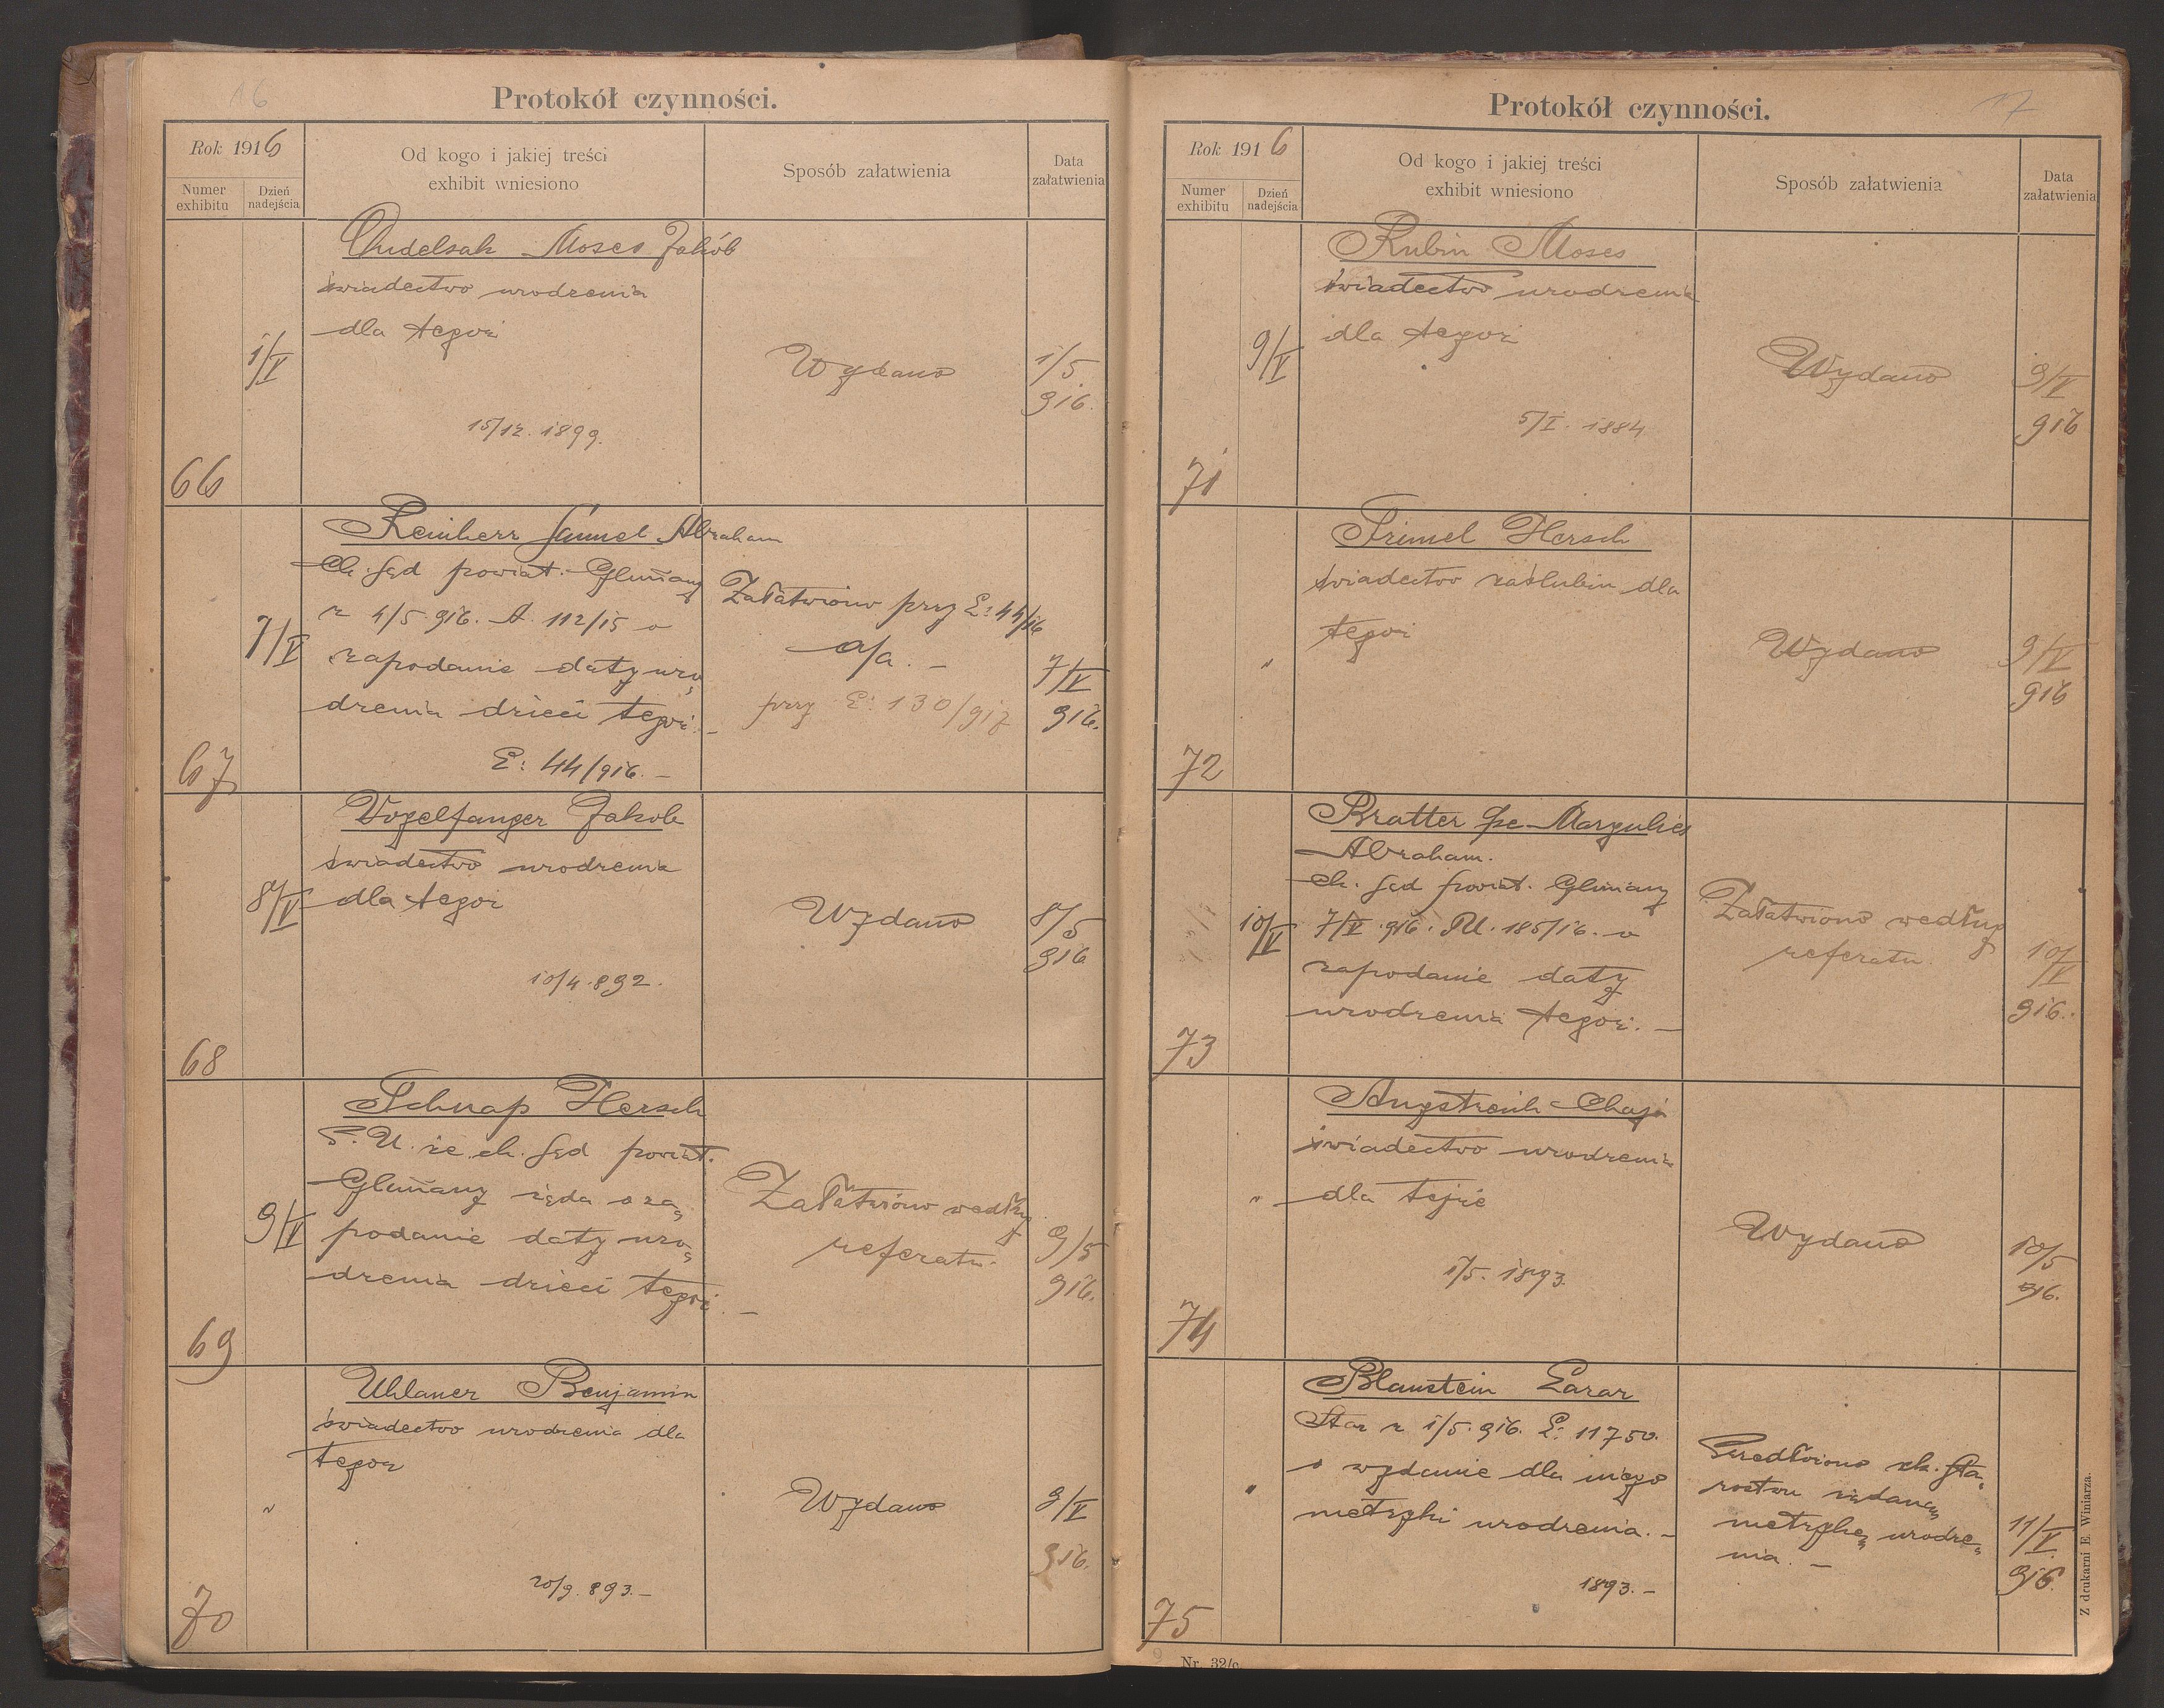 16
Protokół czynności.
Rok 1916
Numer exhibitu
Dzień nadejścia
Od kogo i jakiej treści
exhibit wniesiono
Sposób załatwienia
Data
załatwienia
Moses Jakób
świadectwo urodzenia
dla tegoż
1/V
Wydano
1/5
916.
15/12. 1899.
66
Reinherr Samuel Abraham
Ck. Sąd powiat. Gliniany
z 4/5 916. A 112/15 o
zapodanie daty uro„
dzenia dzieci tegoż. –
E: 44/916. –
7/V
Załatwiono przy E: 44/16
a/a. –
przy E: 130/917
7/V
916.
67
Vogelfanger Jakob
świadectwo urodzenia
dla tegoż
8/V
Wydano
8/5
916
10/4. 892.
68
Schnap Hersch
P. U. że ck. Sąd powiat.
Gliniany żąda o za„
podanie daty uro„
dzenia dzieci tegoż. –
9/V
Załatwiono według
referatu.
9/5
916.
69
Uhlaner Benjamin
świadectwo urodzenia dla
tegoż
"
Wydano
9/V
916.
20/9. 893. –
70
17
Protokół czynności.
Rok 1916
Numer exhibitu
Dzień nadejścia
Od kogo i jakiej treści
exhibit wniesiono
Sposób załatwienia
Data
załatwienia
Rubin Moses
świadectwo urodzenia
dla tegoż
9/V
Wydano
9/V
916
5/I. 1884
71
Primel Hersch
świadectwo zaślubin dla
tegoż
"
Wydano
9/V
916
72
Bratter Margulies
Abraham.
ck. Sąd powiat. Gliniany
7/V 916. PU. 185/16. o
zapodanie daty
urodzenia tegoż. –
10/V
Załatwiono według
referatu
10/V
916.
73
Angstreich Chaja
świadectwo urodzenia
dla tejże
"
Wydano
10/5
916.
1/5. 1893.
74
Blaustein Lazar
Star z 1/5. 916. L: 11750.
o wydanie dla niego
metryki urodzenia. –
"
Przedłożono ck. Sta„
rostwu żądaną„
metrykę„ urodze„
nia. –
11/V
916.
1893. –
75
Z drukarni E. Winiarza.
Nr. 32/c